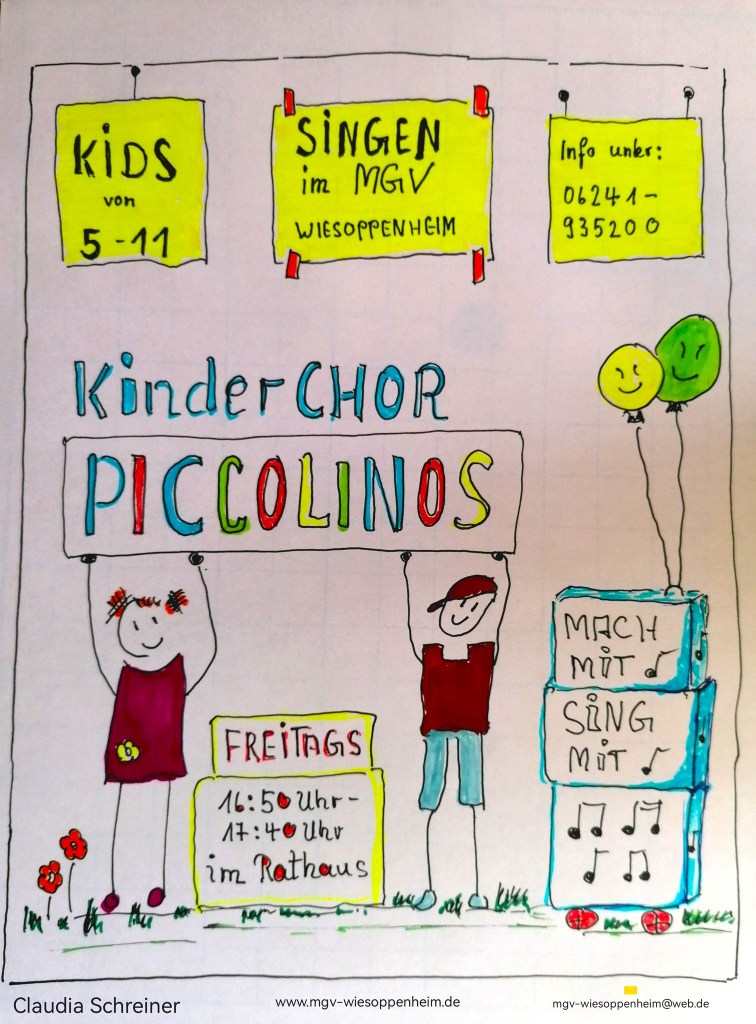 KiDS
von
5-11
SiNGEN
im MGV
WIESOPPENHEIM
Info unter:
06241-
935200
KinderCHOR
PICCOLINOS
MACH
MiT
SiNG
MiT
FREiTAGS
16:50 Uhr-
17:40 Uhr
im Rathaus
Claudia Schreiner
www.mgv-wiesoppenheim.de
mgv-wiesoppenheim@web.de